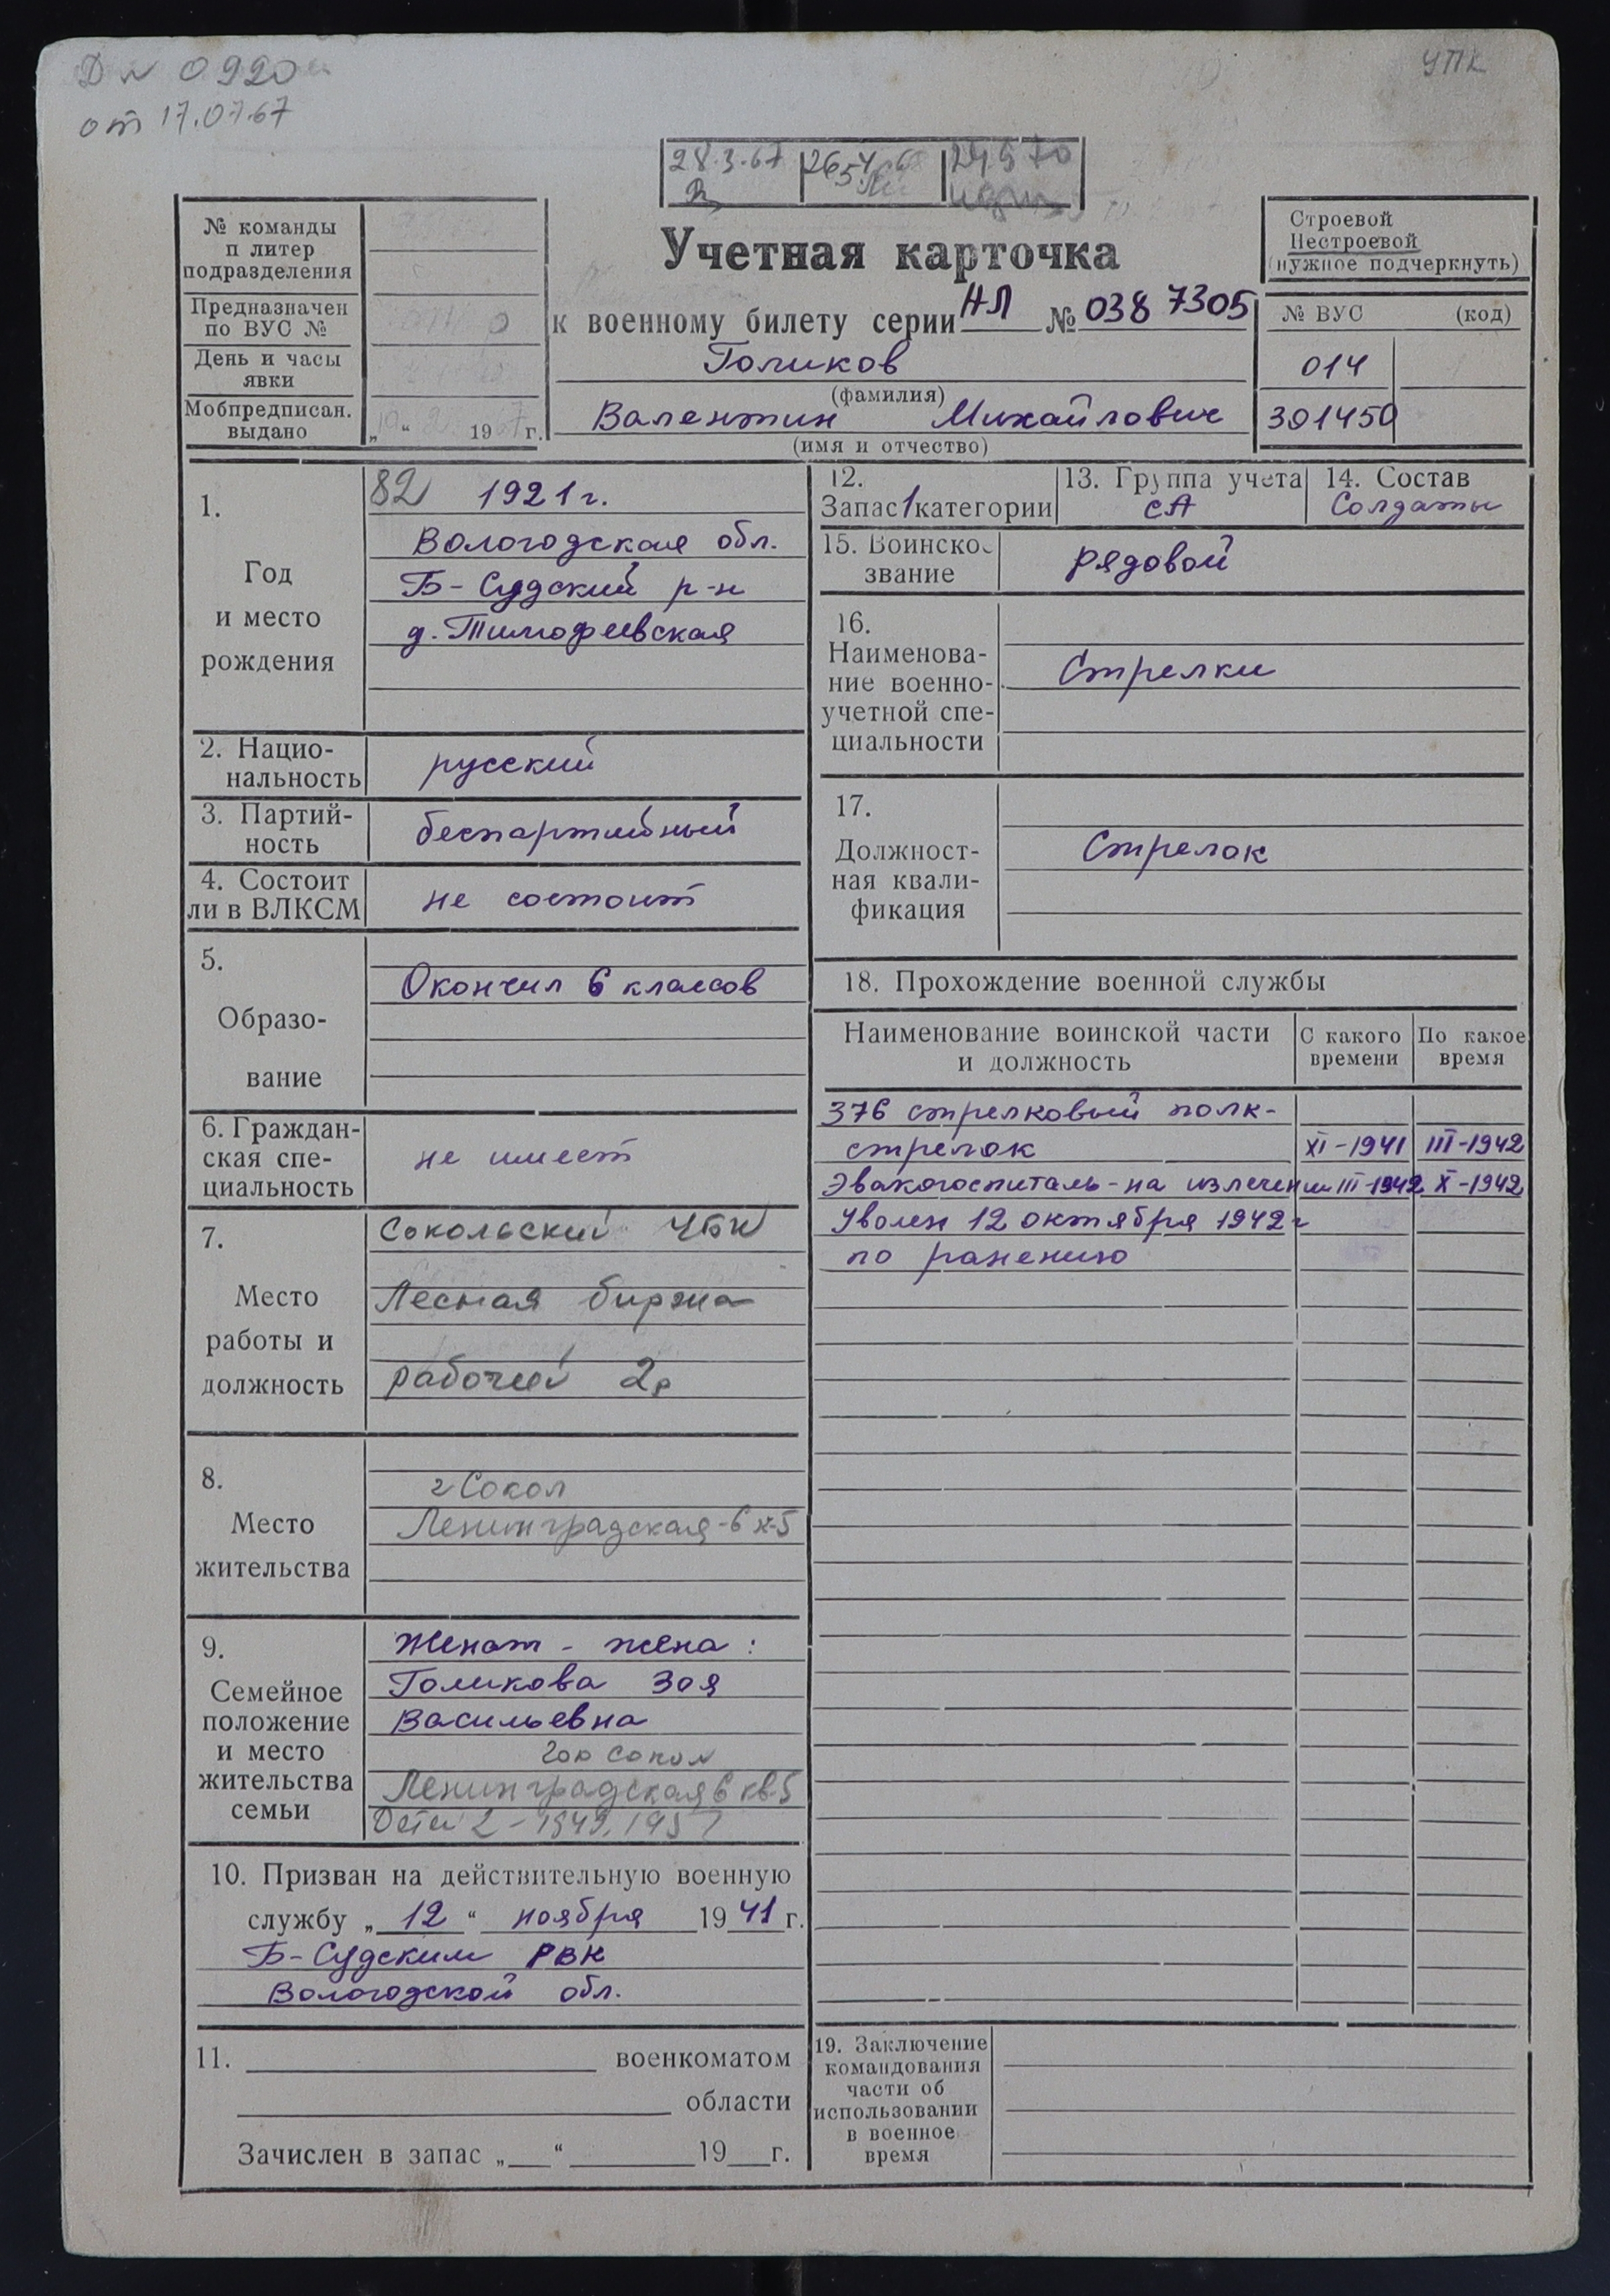 Д № 0920
от 17.07.67
УПК
28.3.67
№ команды
п литер
подразделения
Предназначен
по ВУС №
День и часы
явки
Мобпредписан.
выдано
„ “ 19 г.
Учетная карточка
к военному билету серии НЛ № 038 7305
Голиков
(фамилия)
Валентин Михайлович
(имя и отчество)
Строевой
Нестроевой
(нужное подчеркнуть)
№ ВУС (код)
014
301450
1.
Год
и место
рождения
82 1921 г.
Вологодская обл.
Б-Судский р-н
д. Тимофеевская
2. Нацио-
нальность
русский
3. Партий-
ность
беспартийный
4. Состоит
ли в ВЛКСМ
не состоит
5.
Образо-
вание
Окончил 6 классов
6. Граждан-
ская спе-
циальность
не имеет
7.
Место
работы и
должность
Сокольский ЦБК
Лесная биржа
рабочий 2р
8.
Место
жительства
г Сокол
Ленинградская-6 к-5
9.
Семейное
положение
и место
жительства
семьи
Женат - жена:
Голикова Зоя
Васильевна
гор Сокол
Ленинградская 6 кв 5
Дети 2 - 1949, 1957
10. Призван на действительную военную
службу „ 12 “ ноября 19 41 г.
Б-Судским РВК
Вологодской обл.
11. военкоматом
области
Зачислен в запас „ “ 19 г.
12.
Запас 1 категории
13. Группа учета
СА
14. Состав
Солдаты
15. Воинское
звание
рядовой
16.
Наименова-
ние военно-
учетной спе-
циальности
Стрелки
17.
Должност-
ная квали-
фикация
Стрелок
18. Прохождение военной службы
Наименование воинской части
и должность
С какого
времени
По какое
время
376 стрелковый полк-
стрелок XI-1941 III-1942
Эвакогоспиталь-на излечении III-1942 X-1942
Уволен 12 октября 1942 г
по ранению
19. Заключение
командования
части об
использовании
в военное
время